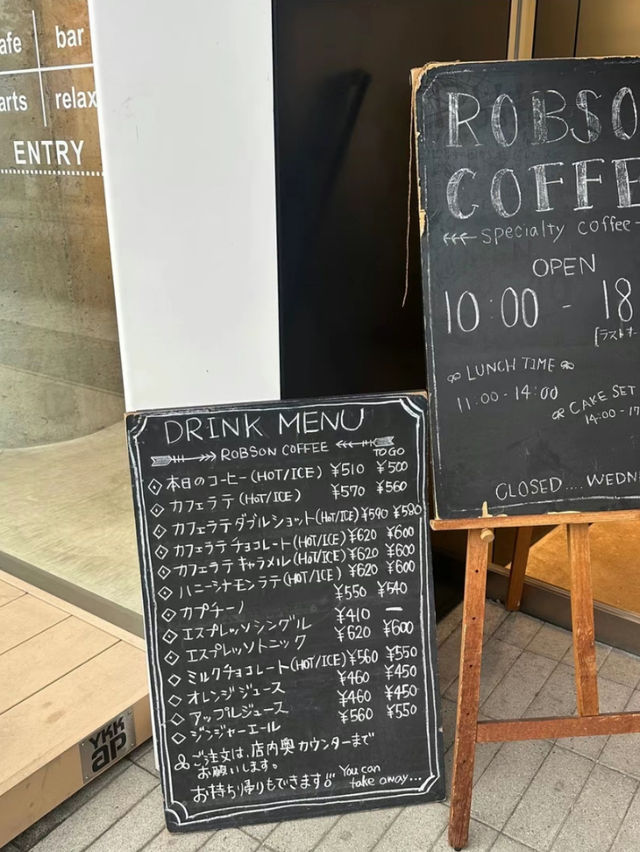 afe | bar
arts | relax
ENTRY
ROBSO
COFFE
specialty coffee
OPEN
10:00 - 18
[ラストオー
LUNCH TIME
11:00 - 14:00
CAKE SET
14:00 - 17
CLOSED.... WEDN
DRINK MENU
ROBSON COFFEE
TO GO
◇本日のコーヒー(HOT/ICE) ¥510 ¥500
◇カフェラテ(HOT/ICE) ¥570 ¥560
◇カフェラテダブルショット(HOT/ICE) ¥590 ¥580
◇カフェラテチョコレート(HOT/ICE) ¥620 ¥600
◇カフェラテキャラメル(HOT/ICE) ¥620 ¥600
◇ハニーシナモンラテ(HOT/ICE) ¥620 ¥600
◇カプチーノ ¥550 ¥540
◇エスプレッソシングル ¥410 ー
◇エスプレッソトニック ¥620 ¥600
◇ミルクチョコレート(HOT/ICE) ¥560 ¥550
◇オレンジジュース ¥460 ¥450
◇アップルジュース ¥460 ¥450
◇ジンジャーエール ¥560 ¥550
ご注文は、店内奥カウンターまで
お願いします。
お持ち帰りもできます!! You can
take away...
YKK
ap